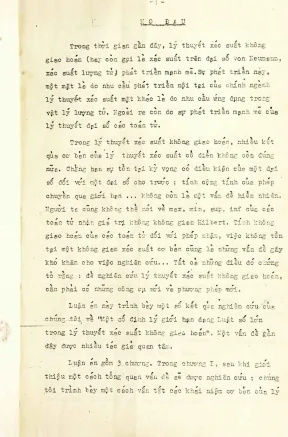 MỞ ĐẦU
Trong thời gian gần đây, lý thuyết xác suất không
giao hoán (hay còn gọi là xác suất trên đại số von Neumann,
xác suất lượng tử) phát triển mạnh mẽ. Sự phát triển này,
một mặt là do nhu cầu phát triển nội tại của chính ngành
lý thuyết xác suất mặt khác là do nhu cầu ứng dụng trong
vật lý lượng tử. Ngoài ra còn do sự phát triển mạnh mẽ của
lý thuyết đại số các toán tử.
Trong lý thuyết xác suất không giao hoán, nhiều kết
quả cơ bản của lý thuyết xác suất cổ điển không còn đúng
nữa. Chẳng hạn sự tồn tại kỳ vọng có điều kiện của một đại
số đối với một đại số con trước; tính cộng tính của phép
chuyển qua giới hạn ... không còn là một vấn đề hiển nhiên.
Người ta cũng không thể nói về max, min, sup, inf của các
toán tử nhận giá trị không gian Hilbert. Tính không
giao hoán của các toán tử đối với phép nhân, việc không tồn
tại một không gian xác suất cơ bản cũng là những vấn đề gây
khó khăn cho việc nghiên cứu... Tất cả những điều đó chứng
tỏ rằng: để nghiên cứu lý thuyết xác suất không giao hoán,
cần phải có những công cụ mới và phương pháp mới.
Luận án này trình bày một số kết quả nghiên cứu của
chúng tôi về "Một số định lý giới hạn dạng Luật số lớn
trong lý thuyết xác suất không giao hoán". Một vấn đề gần
đây được nhiều tác giả quan tâm.
Luận án gồm 3 chương. Trong chương I, sau khi giới
thiệu một cách tổng quan vấn đề sẽ được nghiên cứu; chúng
tôi trình bày một cách vắn tắt các khái niệm cơ bản của lý